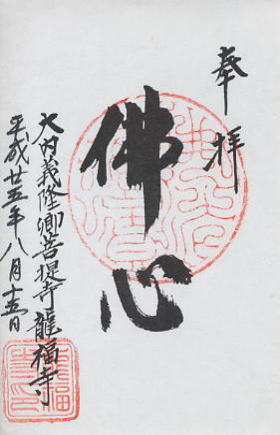 奉拝
佛心
大内義隆卿菩提寺龍福寺
平成廿五年八月十五日